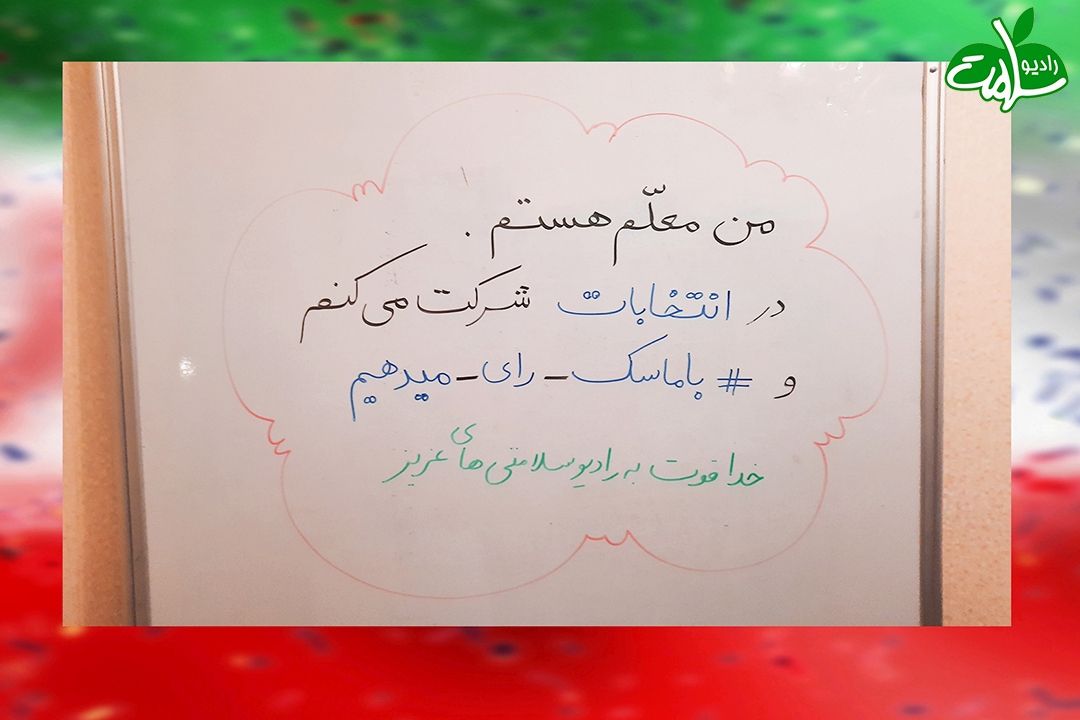 رادیو
سلامت
من معلّم هستم .
در انتخابات شرکت می کنم
و # باماسک_رای_میدهیم
خدا قوت به رادیو سلامتی های عزیز